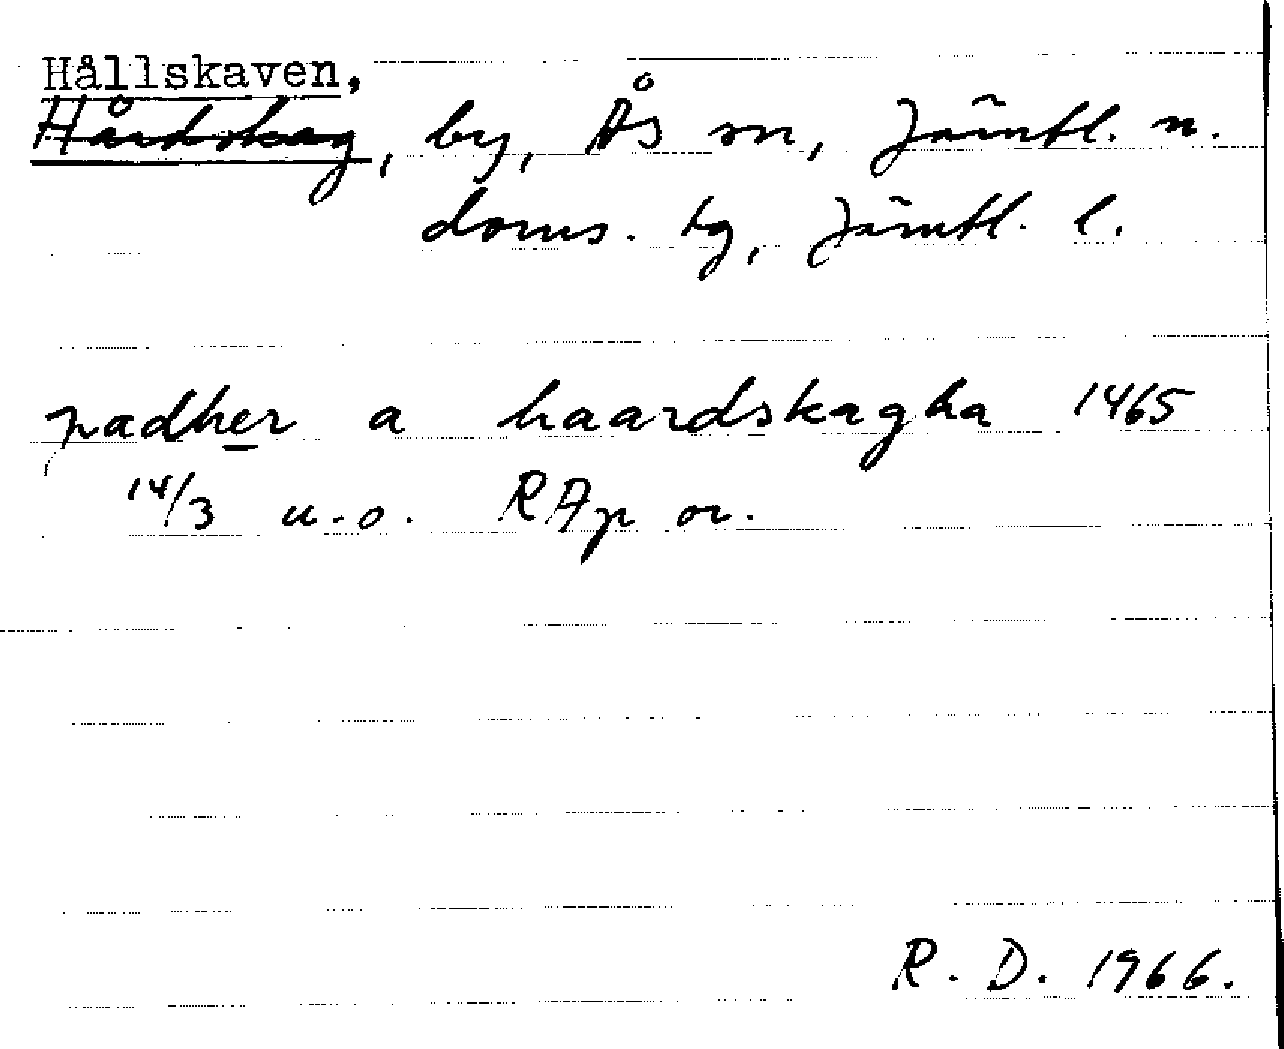 Hållskaven,
Hårdskag, by, Ås sn, Jämtl. n.
doms. tg, Jämtl. l.
padher a haardskagha 1465
14/3 u.o. RAp or.
R. D. 1966.